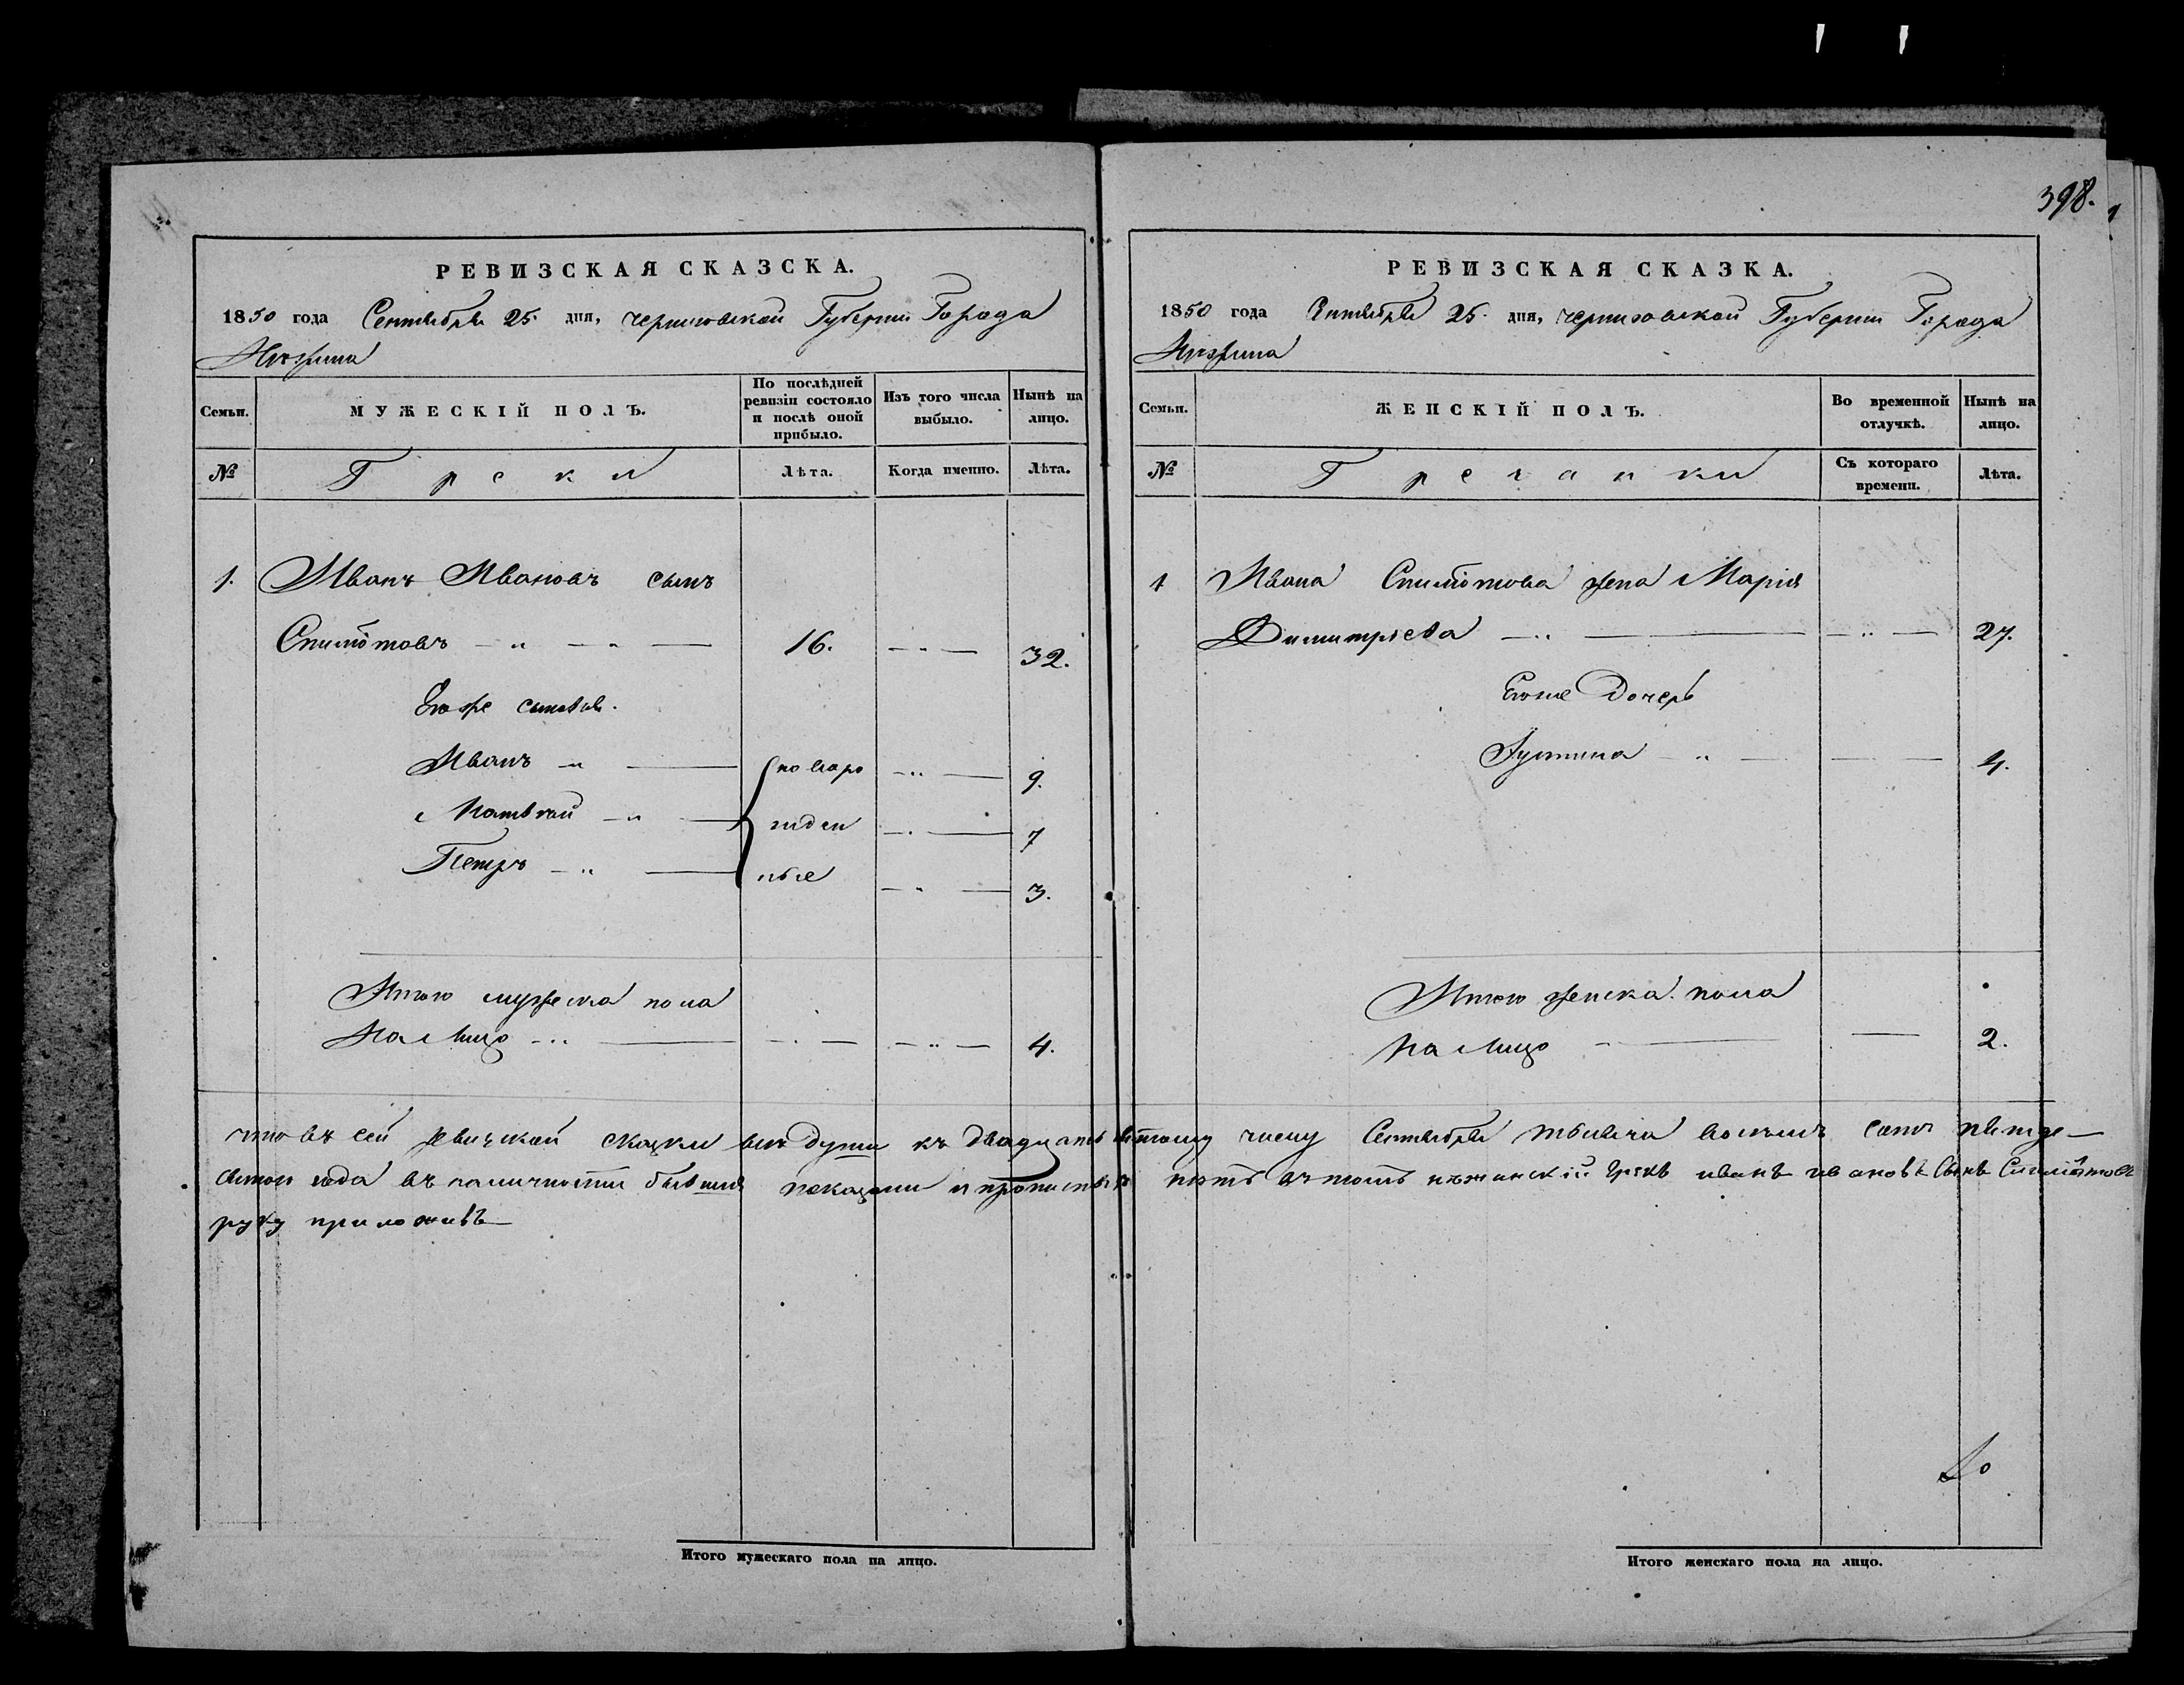 398.
РЕВИЗСКАЯ СКАЗСКА.
1850 года Сентября 25. дня, Черниговской Губернии Города
Нѣжина
Семьи.
МУЖЕСКІЙ ПОЛЪ.
По послѣдней ревизіи состояло и послѣ оной прибыло.
Изъ того числа выбыло.
Нынѣ на лицо.
№
Греки
Лѣта.
Когда именно.
Лѣта.
1. Иванъ Ивановъ сынъ
16. 32.
Егоже сыновья.
Иванъ новоро 9.
Матвѣй жден 7
Петръ ные 3.
Итого мужеска пола
На Лицо 4.
РЕВИЗСКАЯ СКАЗКА.
1850 года Сентября 25. дня, Черниговской Губернии Города
Нѣжина
Семьи.
ЖЕНСКІЙ ПОЛЪ.
Во временной отлучкѣ.
Нынѣ на лицо.
№
Гречанки
Съ котораго времени.
Лѣта.
1 Ивана жена Марія
Димитріева 27.
Егоже Дочерь
Іустина 4.
Итого женска пола
На Лицо 2.
что въ сей Ревизской сказки всѣ души къ двадцать пятому числу Сентября тысяча восемь сотъ пятде-
сятого года въ наличности бывшія показани и прописныхъ нѣтъ въ томъ нѣжинскій Грекъ иванъ ивановъ Сынъ
руку приложивъ
Итого мужескаго пола на лицо.
Итого женскаго пола на лицо.